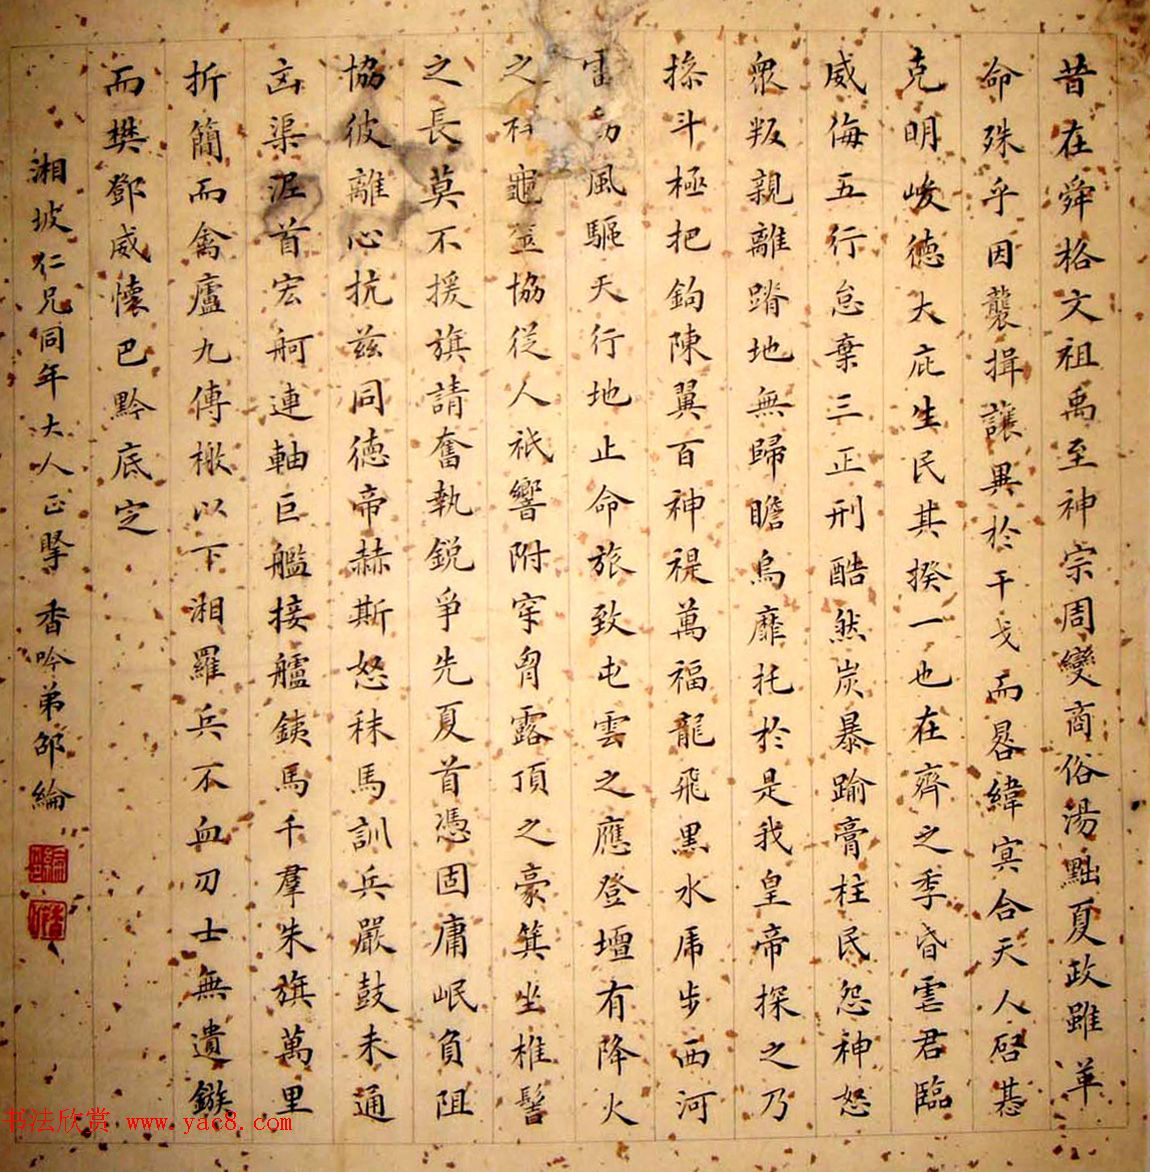 昔在舜格文祖禹至神宗周變商俗湯黜夏政雖革
命殊乎因襲揖讓異於干戈而晷緯冥合天人啓惎
克明峻德大庇生民其揆一也在齊之季昏虐君臨
威侮五行怠棄三正刑酷然炭暴踰膏柱民怨神怒
衆叛親離踏地無歸瞻烏靡托於是我皇帝探之乃
操斗極把鉤陳翼百神禔萬福龍飛黑水虎步西河
雷動風驅天行地止命旅致屯雲之應登壇有降火
之祥龜筮協從人祇響附穿胷露頂之豪箕坐椎髻
之長莫不援旗請奮執銳爭先夏首憑固庸岷負阻
協彼離心抗茲同德帝赫斯怒秣馬訓兵嚴鼓未通
凶渠泥首宏舸連軸巨艦接艫鐵馬千羣朱旗萬里
折簡而禽廬九傳檄以下湘羅兵不血刃士無遺鏃
而樊鄧威懷巴黔底定
湘坡仁兄同年大人正擥 香吟弟邵綸
书法欣赏 www.yac8.com